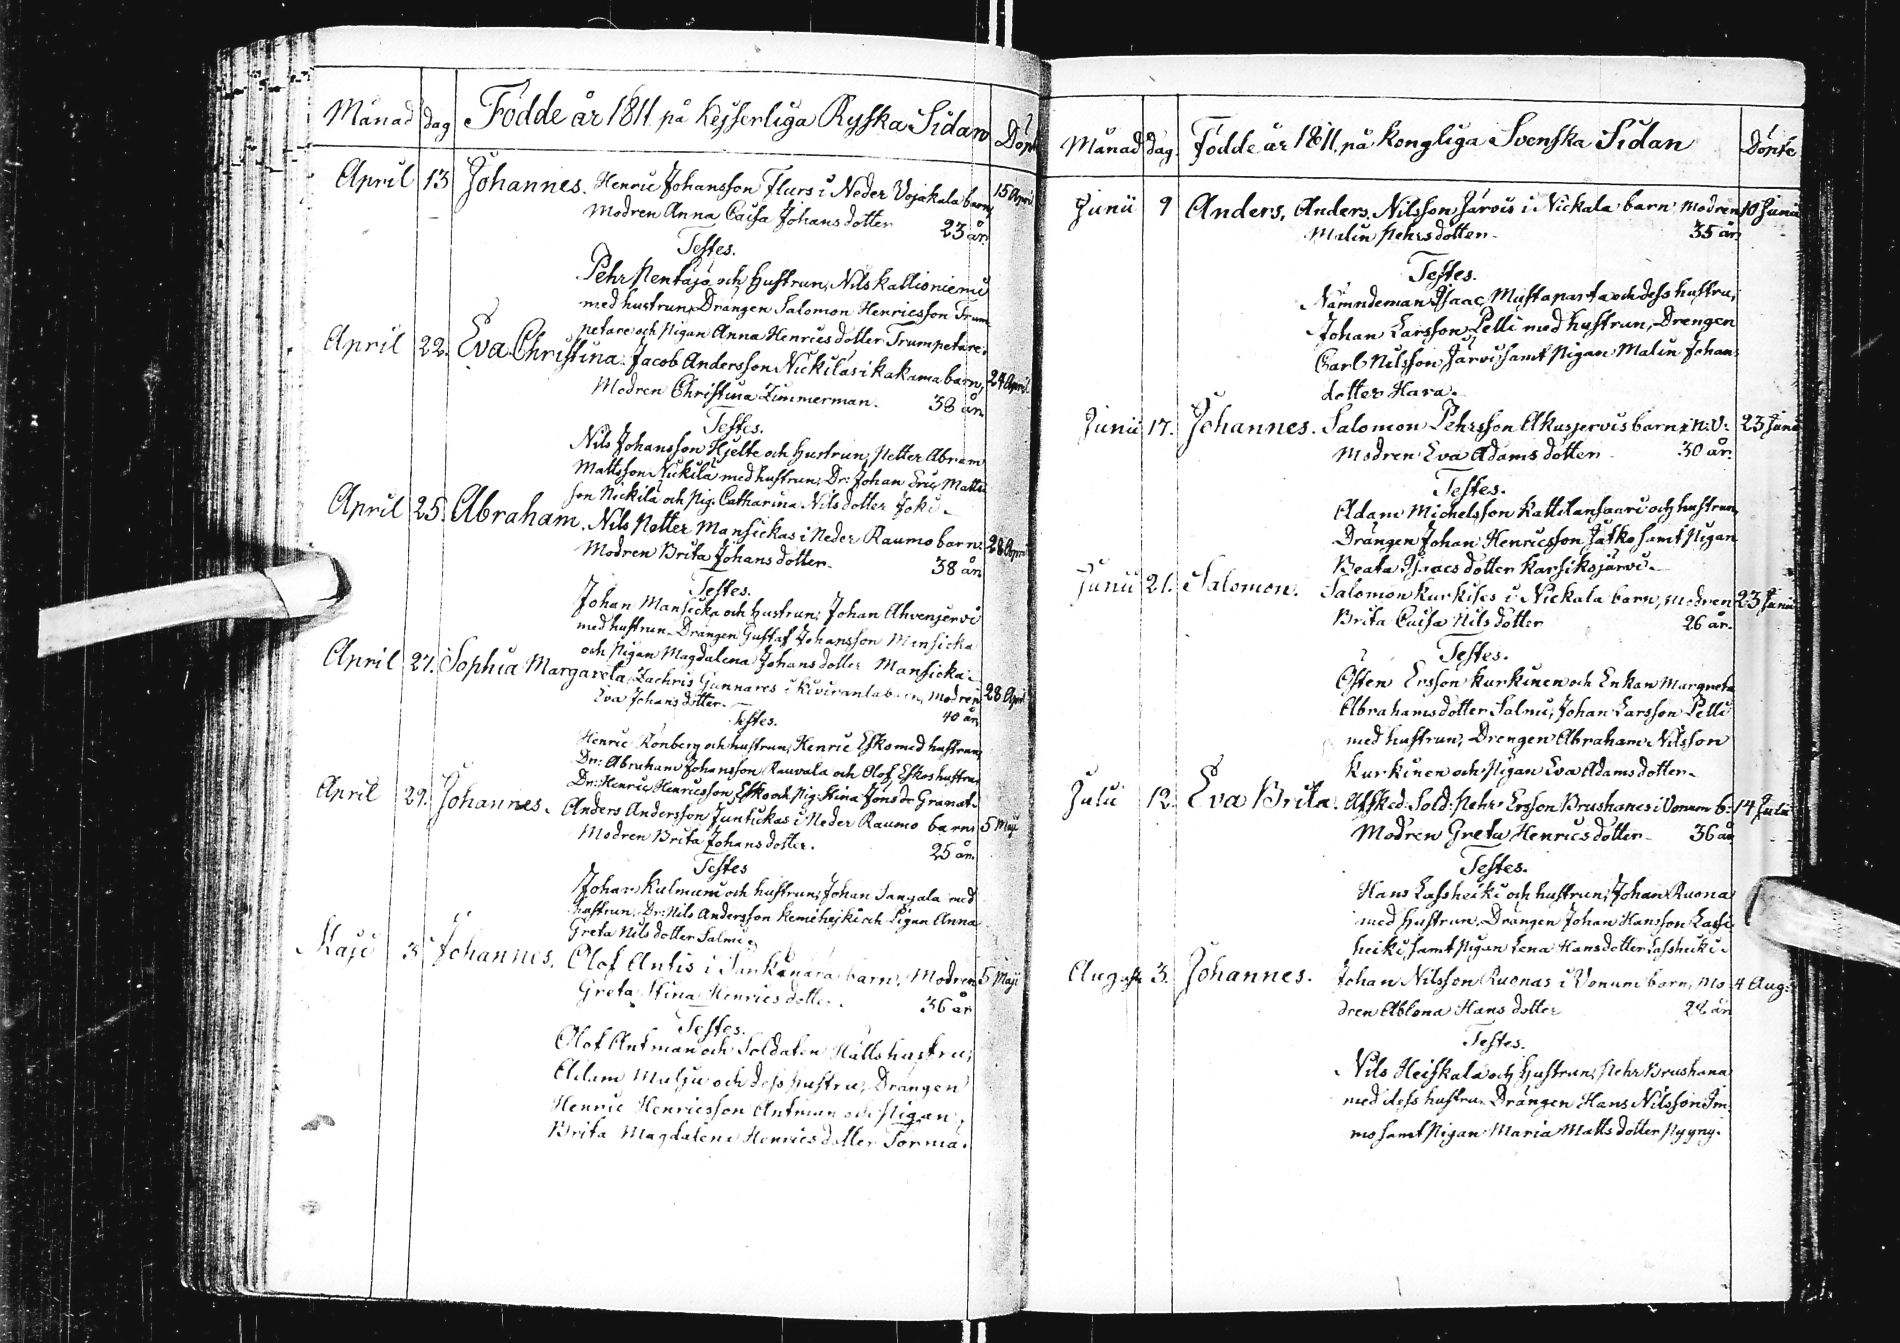 Månad dag Födde år 1811 på Kejserliga Ryska Sidan Döpt
April 13 Johannes. Henric Johansson Flurs i Neder Vojakala barn, 15 April
Modren Anna Caisa Johansdotter 23 år
Testes.
Pehr Pentäjä och Hustrun, Nils Kallioniemi
med hustrun, Drängen Salomon Henricsson Trum
petare och Pigan Anna Henricsdotter Trumpetare.
April 22. Eva Christina. Jacob Andersson Nickilas i Kakama barn, 24 April
Modren Christina Zimmerman. 38 år
Testes.
Nils Johansson Hjelte och Hustrun, Petter Abram
Mattsson Nickilä med hustrun, Dr: Johan Eric Matts
son Nickilä och Pig. Catharina Nilsdotter Joki.
April 25. Abraham. Nils Petter Mansickas i Neder Raumo barn: 28 April
Modren Brita Johansdotter. 38 år
Testes.
Johan Mansicka och Hustrun; Johan Ahvenjervi
med hustrun. Drängen Gustaf Johansson Mansicka
och Pigan Magdalena Johansdotter Mansicka.
April 27. Sophia Margareta. Zachris Gunnares i Kiviranta barn, Modren 28 April
Eva Johansdotter. 40 år
Testes.
Henric Rönberg och hustrun, Henric Esko med hustrun,
Dr: Abraham Johansson Rauvala och Olof Eskos hustru
Dr: Henric Henricsson Esko och Pig: Stina Jöns Dr Granat.
April 29. Johannes. Anders Andersson Juntickas i Neder Raumo barn 5 Maji
Modren Brita Johansdotter. 25 år.
Testes
Johan Kulmuni och hustrun; Johan Sangala med
hustrun, Dr: Nils Andersson Kemiheiki och Pigan Anna
Greta Nilsdotter Salmi
Maji 3 Johannes. Olof Antis i barn, Modren 5 Maji
Greta Stina Henricsdotter. 36 år
Testes.
Olof Antman och Soldaten Hälls hustru,
Adam Maliju och dess hustru, Drängen
Henric Henricsson Antman och Pigan
Brita Magdalena Henricsdotter Tormä.
Månad dag. Födde år 1811, på Kongliga Svenska Sidan Döpte
Junii 9 Anders, Anders Nilsson Järvis i Nickala barn Modren 10 Junii
Malin Pehrsdotter. 35 år
Testes.
Nämndeman Isaac Mustaparta och dess hustru,
Johan Larsson Pelli med hustrun, Drengen
Carl Nilsson Järvi samt Pigan Malin Johans
dotter Hara.
Junii 17. Johannes. Salomon Pehrsson Akusjervis barn i N:V: 23 Junii
Modren Eva Adamsdotter. 30 år.
Testes.
Adam Michelsson Kattilansaari och hustrun,
Drängen Johan Henricsson Jatko samt Pigan
Beata Isaacsdotter Karsiksjärvi.
Junii 21. Salomon. Salomon Kurkises i Nickala barn, Modren 23 Junii
Brita Caisa Nilsdotter 26 år.
Testes.
Östen Ersson Kurkinen och Enkan Margreta
Abrahamsdotter Salmi, Johan Larsson Pelli
med hustrun, Drengen Abraham Nilsson
Kurkinen och Pigan Eva Adamsdotter.
Julii 12. Eva Brita. Afsked: Sold: Pehr Ersson Brushanes i Vonum b: 14 Julii
Modren Greta Henricsdotter. 36 år
Testes.
Hans Lassheiki och hustrun; Johan Ruona
med Hustrun. Drängen Johan Hansson Lass
heiki samt Pigan Lena Hansdotter Lassheiki.
August 3. Johannes. Johan Nilsson Ruonas i Vonum barn, Mo 4 Aug:
dren Ablona Hansdotter 28 år
Testes.
Nils Heiskala och Hustrun; Pehr Brushana
med dess hustru. Drängen Hans Nilsson Im
mo samt Pigan Maria Mattsdotter Pyyny.